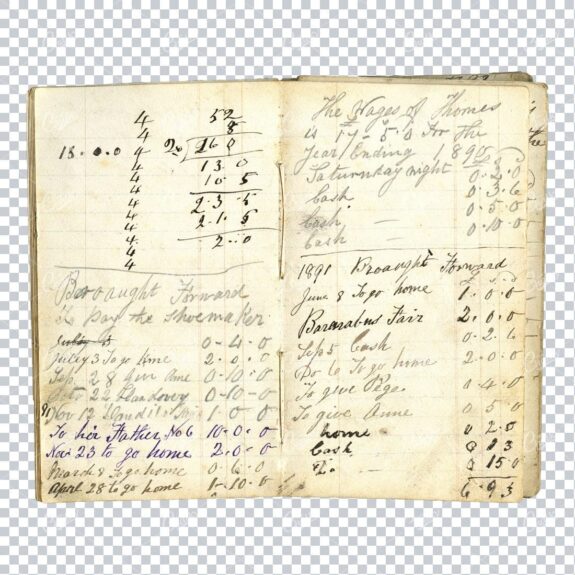 4 52
4 8
18.0.0 4 20 16 0
4
4 13 0
4 10 5
4 2.3.5
4 2.1.5
4
4 2..0
4
4
Broaught Forward
To pay the shoemaker
0-4-0
July 3 To go home 2.0.0
28 0-10-0
0-10-0
Nov 12 1-0-0
To her Father No 6 10-0-0
Nov 23 to go home 2.0.0
March 8 To go home 0-6-0
April 28 to go home 1-10-0
The Wages of Thomes
is 17-5-0 For The
Year Ending 1890
Saturnday night 0-2-0
Cash 0.3.6
Cash 0-5-0
Cash 0.10.0
1891 Broaught Forward
June 8 To go home 1.0.0
Barnabus Fair 2.0.0
Sep 5 Cash 0-2.6
Do 6 To go home 2.0.0
To give 0-4.0
To give Anne 0 5 0
home 0 2 0
Cash
15 0
6.9.3